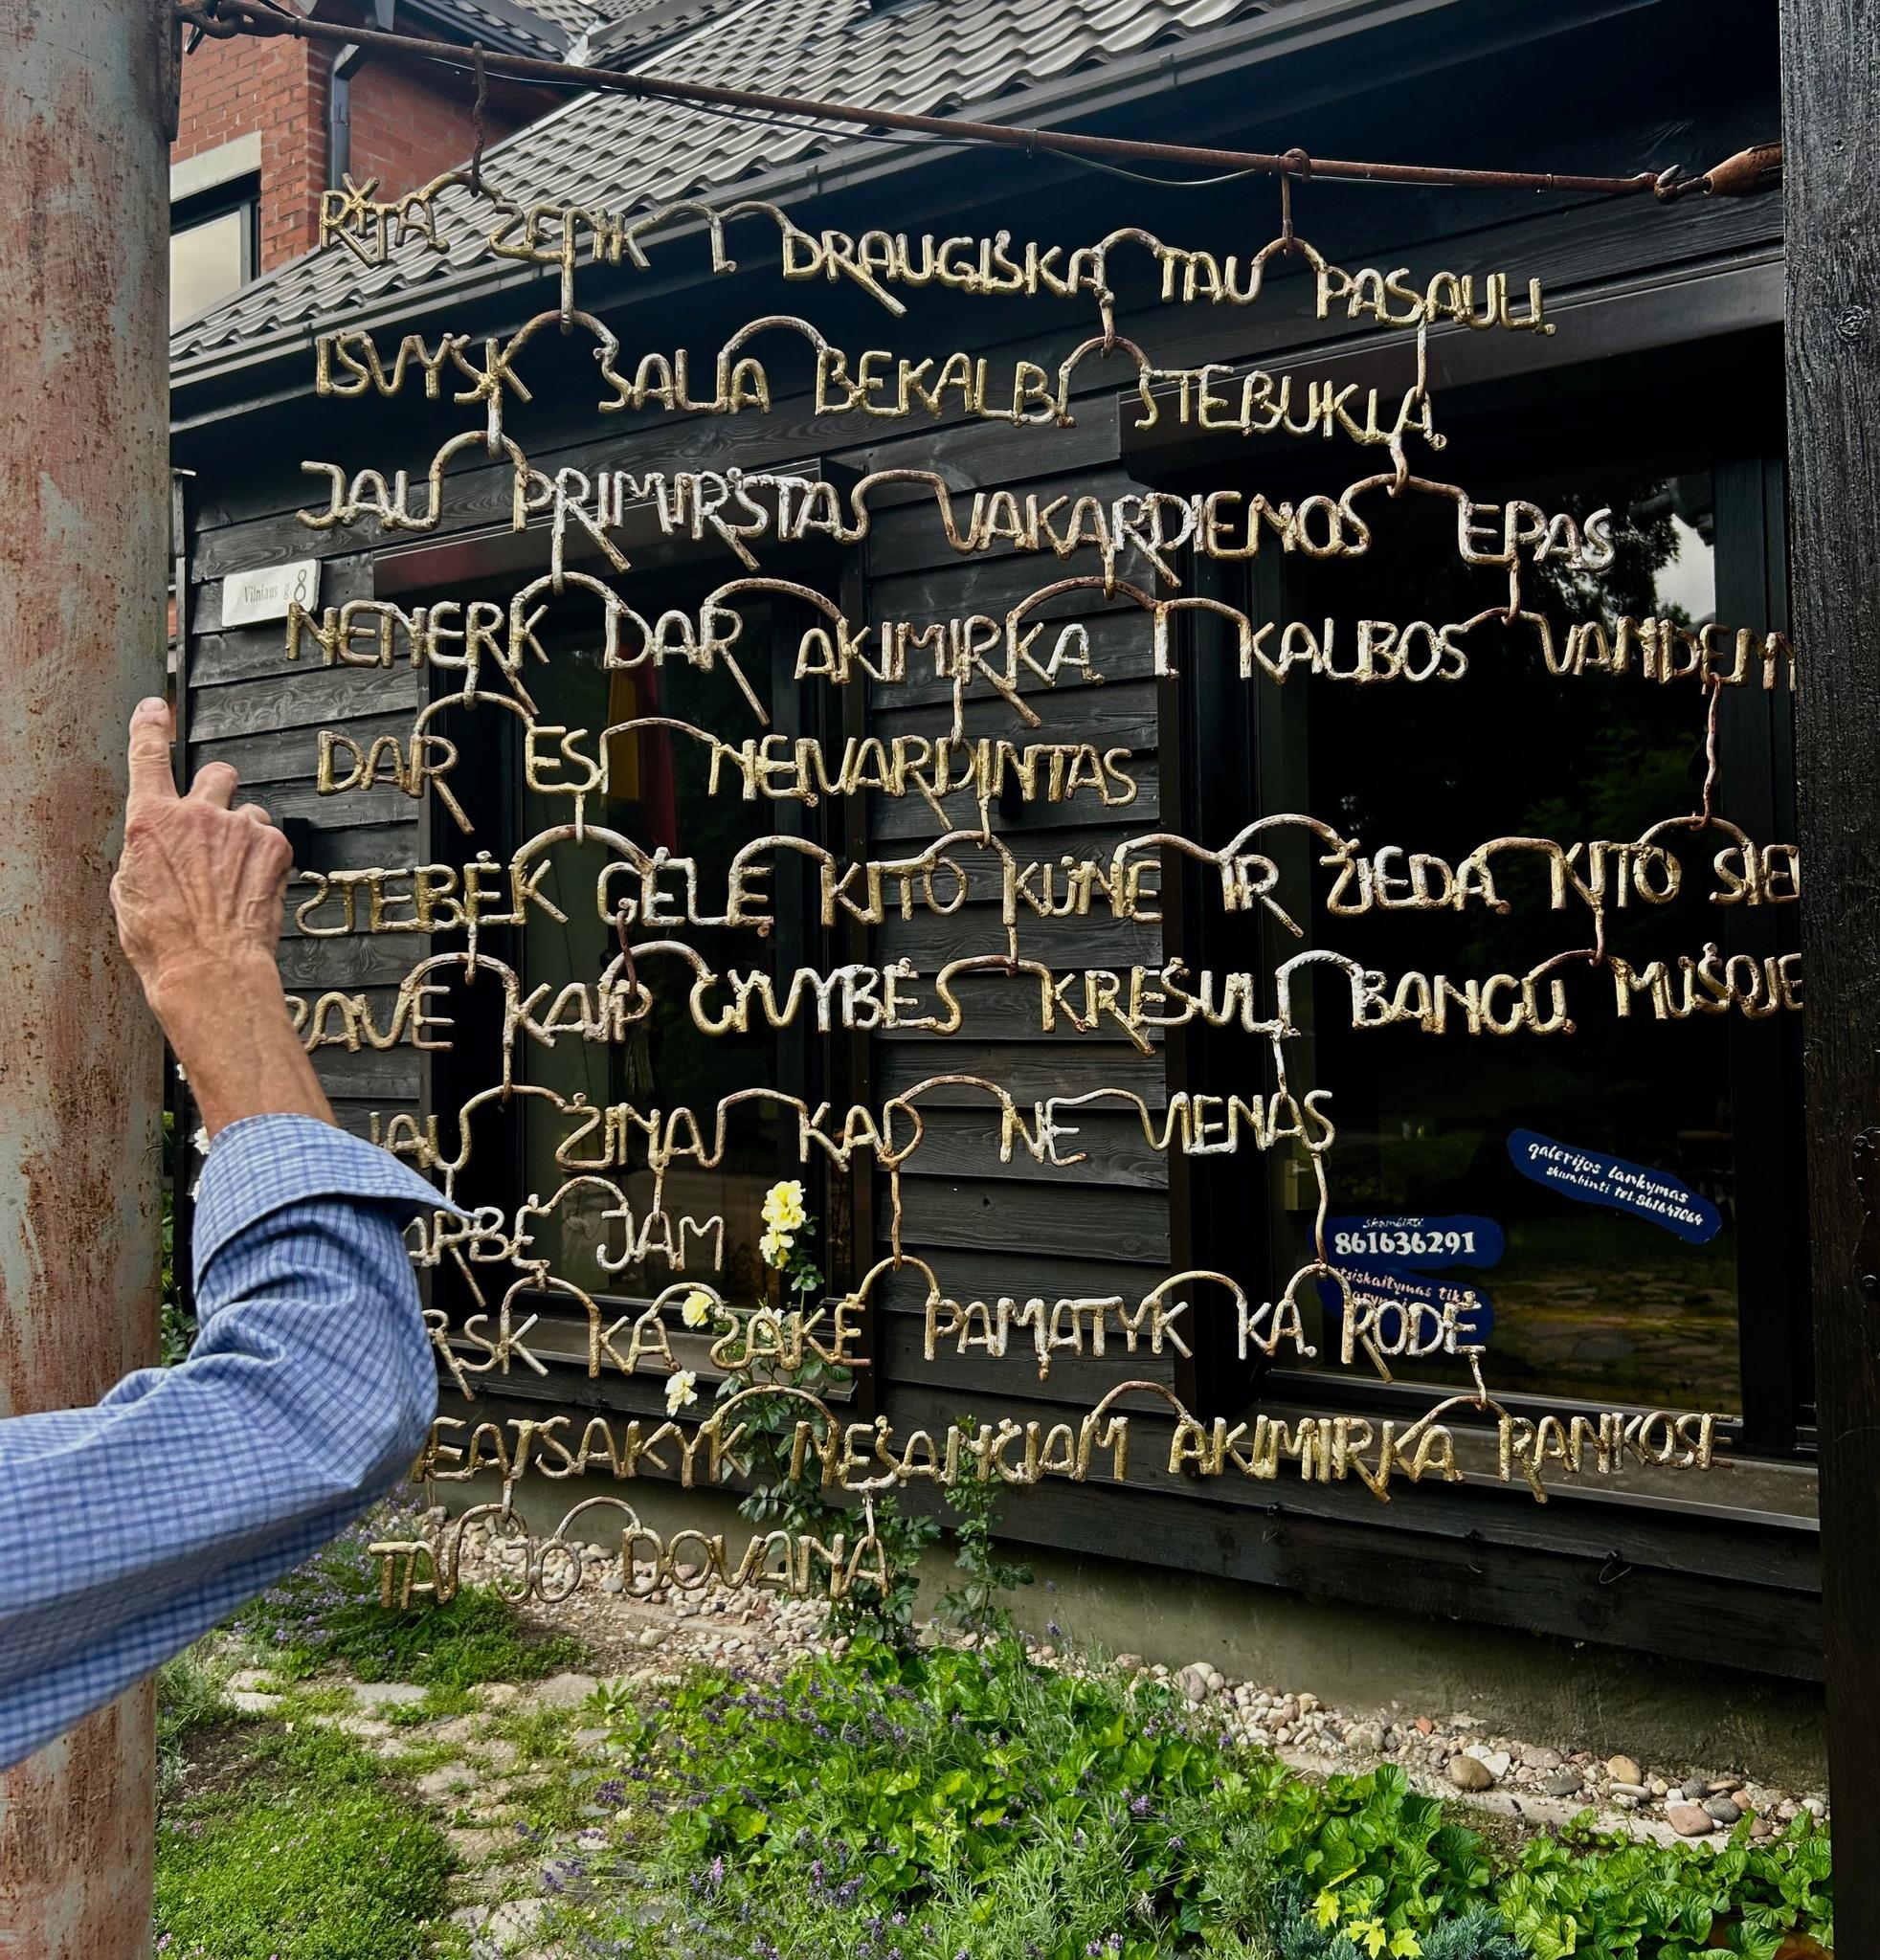 RYTĄ ŽENK Į DRAUGIŠKĄ TAU PASAULĮ.
IŠVYSK ŠALIA BEKALBĮ STEBUKLĄ.
JAU PRIMIRŠTAS VAKARDIENOS EPAS
NENERK DAR AKIMIRKĄ Į KALBOS VANDENĮ
DAR ESI NEĮVARDINTAS
STEBĖK GĖLĘ KITO KŪNE IR ŽIEDĄ KITO
SAVE KAIP GYVYBĖS KREŠULĮ BANGŲ MŪŠOJE
JAU ŽINAI KAD NE VIENAS
JAM
KĄ SAKĖ PAMATYK KĄ RODĖ
NEATSAKYK NEŠANČIAM AKIMIRKĄ RANKOSE
TAI JO DOVANA
Vilniaus g. 8
galerijos lankymas
skambinti tel. 861647064
skambinti
861636291